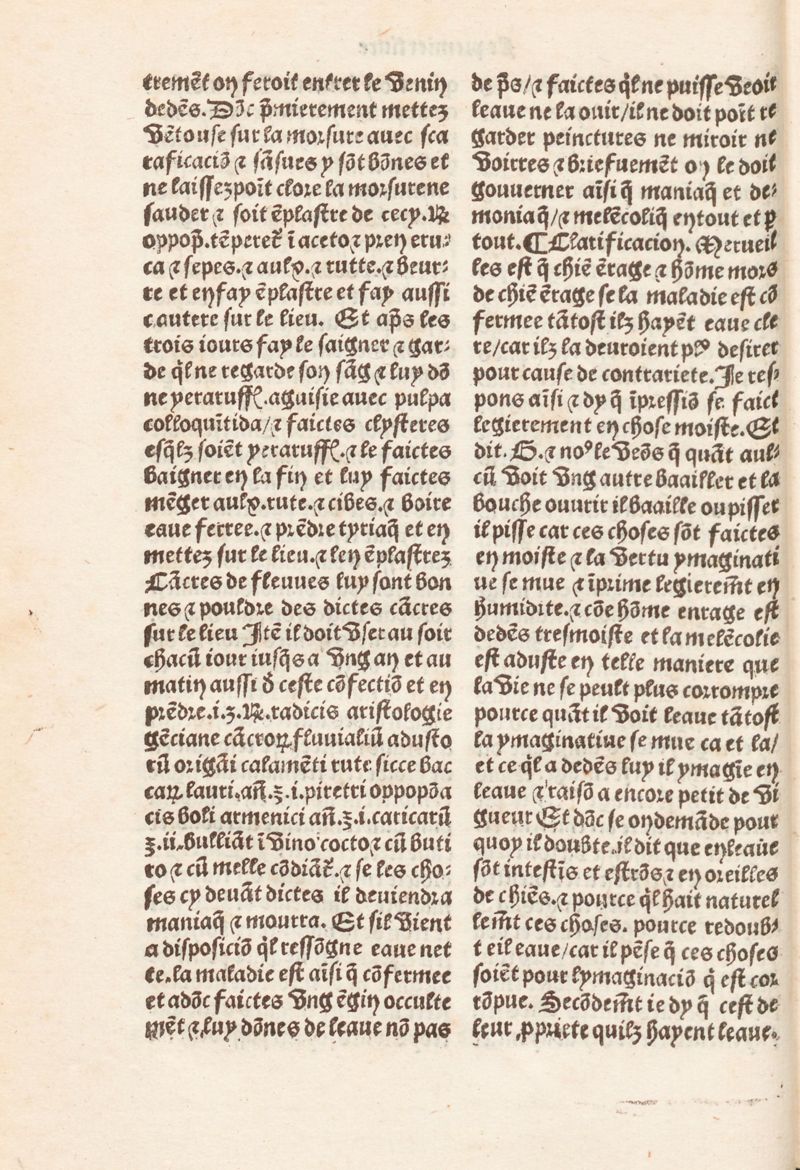 tremēt on feroit entrer le venin
dedēs. Dōc p̄mierement mettez
vētouse sur la morsure avec sca
rificaciō ⁊ sāsues y sōt bōnes et
ne laissez poīt clore la morsure ne
sauder ⁊ soit ēplastre de cecy. ℞
oppop̄. tēperet̄ ī aceto ⁊ pren eru⸗
ca ⁊ sepes. ⁊ aulx. ⁊ rutte. ⁊ beur⸗
re et en fay ēplastre et fay aussi
cautere sur le lieu. Et ap̄s les
trois iours fay le saigner ⁊ gar⸗
de q̄l ne regarde son sāg ⁊ luy dō
ne yeraruff̄. aguisie avec pulpa
colloquītida/⁊ faictes clysteres
esq̄lz soiēt yeraruff̄. ⁊ le faictes
baigner en la fin et luy faictes
mēger aulx. rute. ⁊ cibes. ⁊ boire
eaue ferree. ⁊ prēdre tyriaq̄ et en
mettez sur le lieu. ⁊ len ēplastrez
Cācres de fleuues luy sont bon
nes ⁊ pouldre des dictes cācres
sur le lieu Itē il doit vser au soir
chacū iour iusq̄s a vng an et au
matin aussi d̄ ceste cōfectiō et en
prēdre .i. ʒ. ℞. radicis aristologie
gēciane cācroꝝ fluuialiū adusto
rū origāi calamēti rute sicce bac
caꝝ lauri. añ. ʒ. i. piretri oppopōa
cis boli armenici añ. ʒ. i. caricarū
ʒ. ii. bulliāt ī vino cocto ⁊ cū buti
ro ⁊ cū melle cōdiāt̄. ⁊ se les cho⸗
ses cy deuāt dictes il deuiendra
maniaq̄ ⁊ mourra. Et sil vient
a disposiciō q̄l ressōgne eaue net
te. la maladie est aīsi q̄ cōfermee
et adōc faictes vng ēgin occulte
mēt ⁊ luy dōnes de leaue nō pas
de p̄s/⁊ faictes q̄l ne puisse veoir
leaue ne la ouir/il ne doit poīt re
garder peinctures ne miroir ne
voirres ⁊ briefuemēt on le doit
gouuerner aīsi q̄ maniaq̄ et de⸗
moniaq̄/⁊ melēcoliq̄ en tout et ꝑ
tout. ¶ Clarificacion. Merueil
les est q̄ chiē ērage ⁊ hōme mors
de chiē ērage se la maladie est cō
fermee tātost ilz hayēt eaue cle
re/car ilz la deuroient plꝰ desirer
pour cause de contrariete. Je res⸗
pons aīsi ⁊ dy q̄ īpressiō se faict
legierement en chose moiste. Et
dit. G. ⁊ noꝰ le veōs q̄ quāt aul⸗
cū voit vng autre baailler et la
bouche ouurir il baaille ou pisser
il pisse car ces choses sōt faictes
en moiste ⁊ la vertu ymaginati
ue se mue ⁊ īprime legierem̄t en
humidite. ⁊ cōe hōme enrage est
dedēs tresmoiste et la melēcolie
est aduste en telle maniere que
la vie ne se peult plus corrompre
pource quāt il voit leaue tātost
la ymaginatiue se mue ca et la/
et ce q̄l a dedēs luy il ymagīe en
leaue ⁊ raisō a encore petit de vi
gueur Et dōc se on demāde pour
quoy il doubte. il dit que en leaue
sōt intestīs et estrōs ⁊ en oreilles
de chiēs. ⁊ pource q̄l hait naturel
lem̄t ces choses. pource redoub⸗
te il eaue/car il pēse q̄ ces choses
soiēt pour lymaginaciō q̄ est cor
rōpue. Secōdem̄t ie dy q̄ cest de
leur ꝓpriete quilz hayent leaue.